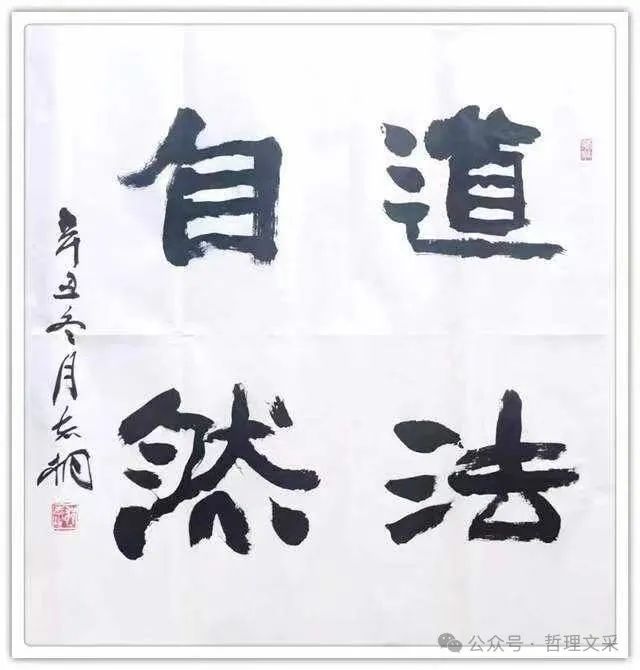 道法
自然
辛丑冬月志桐
公众号 · 哲理文采